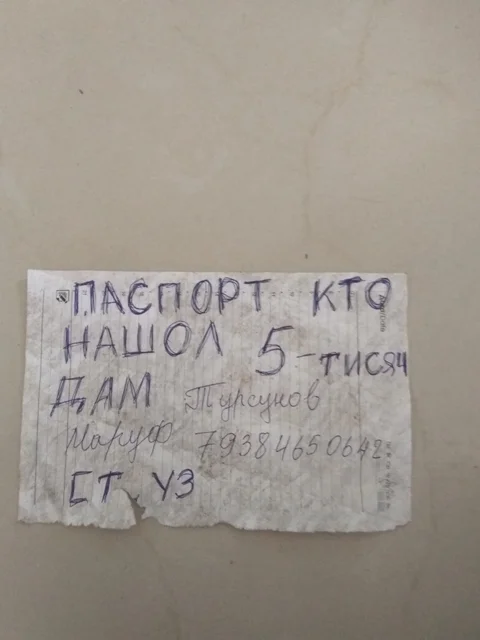 ПАСПОРТ КТО
НАШОЛ 5-ТИСЯЧ
ДАМ Турсунов
Маруф 79384650642
СТ УЗ